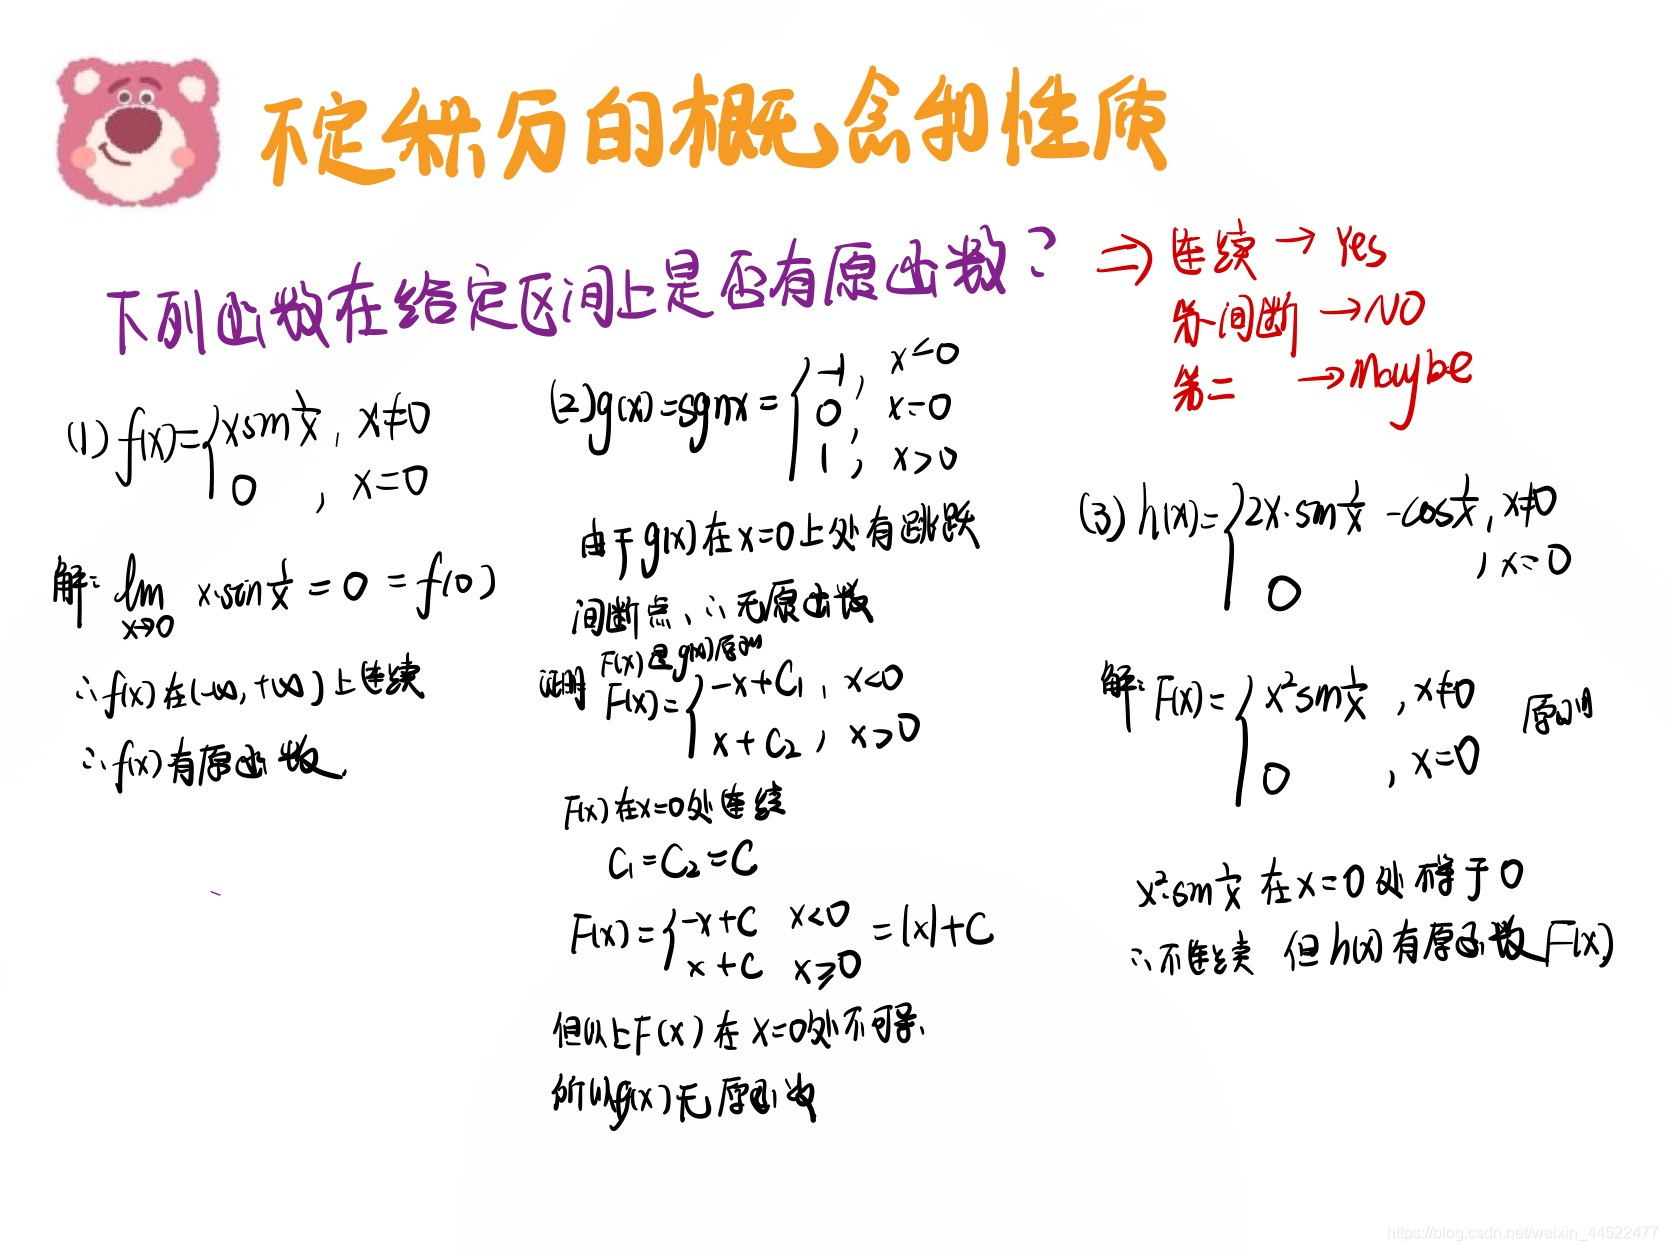 不定积分的概念和性质
下列函数在给定区间上是否有原函数？
⇒ 连续 → Yes
第一间断 → NO
第二 → Maybe
(1) f(x)={xsin1/x, x≠0
0, x=0
解: lim x→0 x·sin1/x = 0 = f(0)
∴f(x)在(-∞,+∞)上连续
∴f(x)有原函数.
(2) g(x)=sgnx={-1, x<0
0, x=0
1, x>0
由于g(x)在x=0上处有跳跃
间断点、∴无原函数
F(x)是g(x)原函
证明 F(x)={-x+C₁, x<0
x+C₂, x>0
F(x)在x=0处连续
C₁=C₂=C
F(x)={-x+C x<0
x+C x≥0 =|x|+C
但以上F(x)在x=0处不可导、
所以g(x)无原函数
(3) h(x)={2x·sin1/x -cos1/x, x≠0
0, x=0
解: F(x)={x²sin1/x, x≠0
0, x=0
x²·sin1/x 在x=0处不等于0
∴不连续 但h(x)有原函数F(x)
https://blog.csdn.net/weixin_44522477